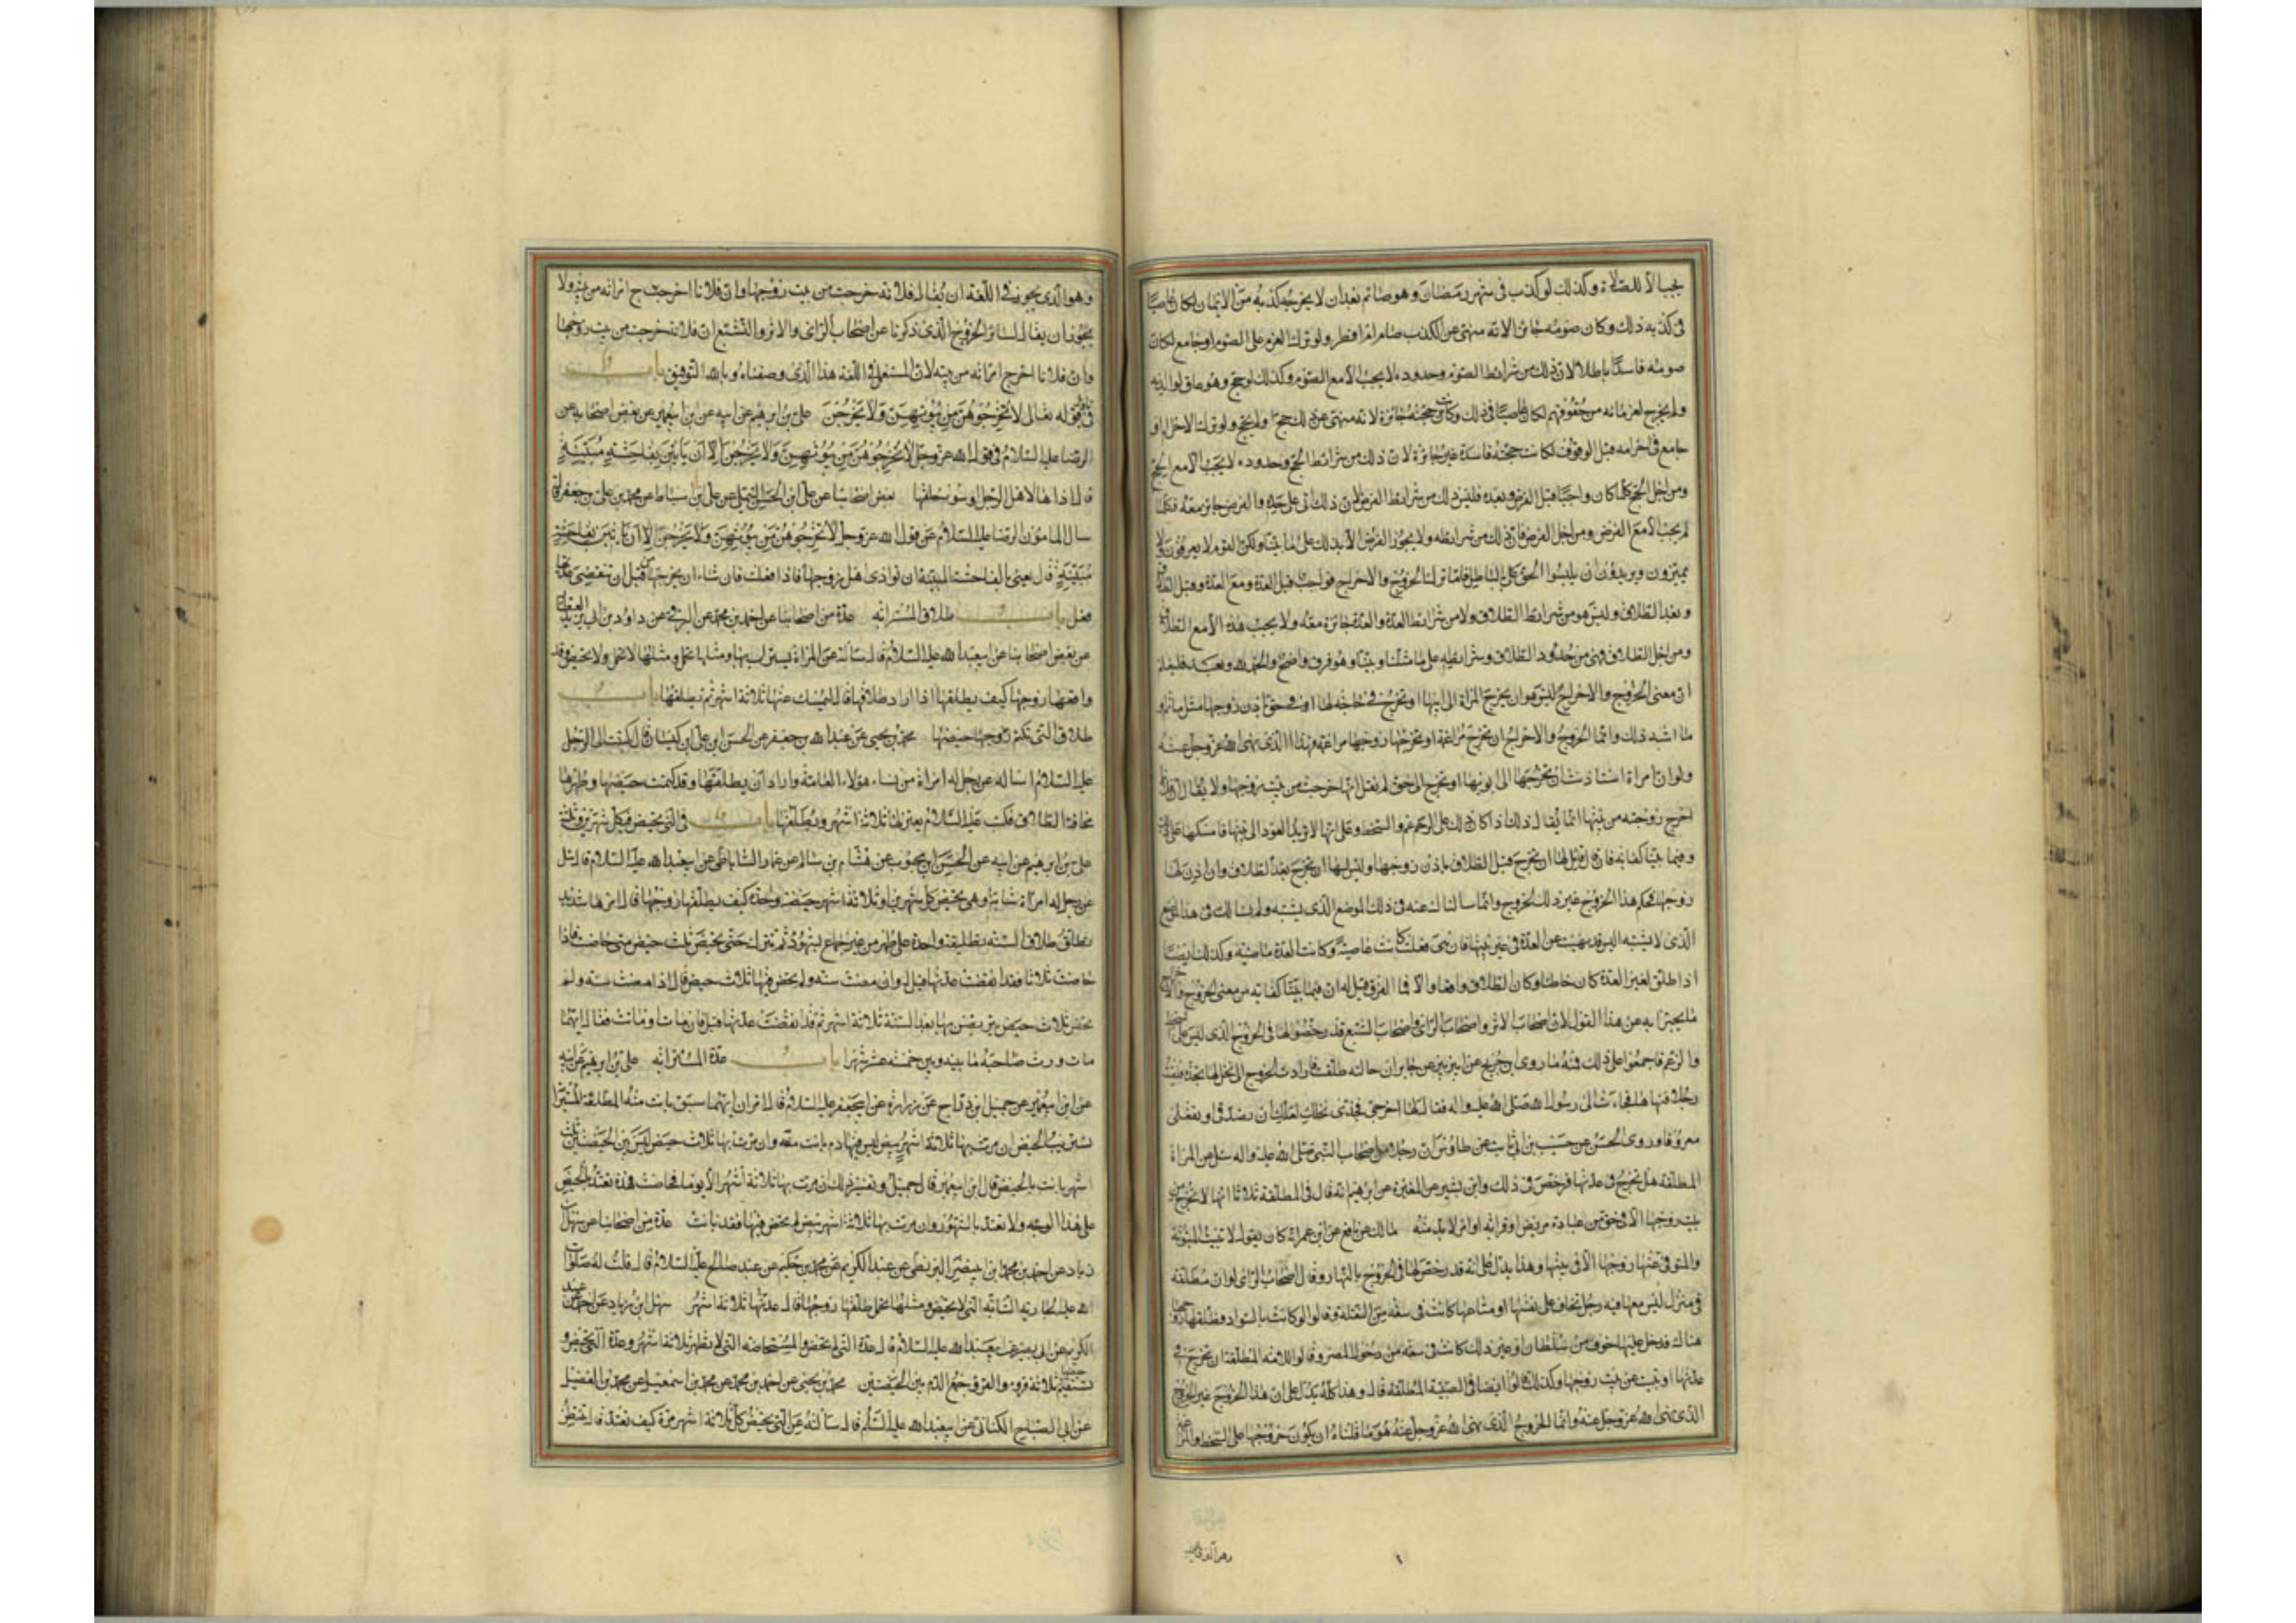 يجب الا للصلاة وكذلك لو كذب فى شهر رمضان وهو صائم بعد ان لا يخرجه كذبه من الايمان لكان عاصيا
فى كذبه ذلك وكان صومه جائزا لانه منهى عن الكذب صام ام افطر ولو ترك العزم على الصوم او جامع لكان
صومه فاسدا باطلا لان ذلك من شرائط الصوم وحدوده لا يجب الا مع الصوم وكذلك لو حج وهو عاق لوالديه
ولم يخرج لغرمائه من حقوقهم لكان عاصيا فى ذلك وكانت حجته جائزة لانه منهى عن ذلك حج او لم يحج ولو ترك الاحرام او
جامع فى احرامه قبل الوقوف لكانت حجته فاسدة غير جائزة لان ذلك من شرائط الحج وحدوده لا يجب الا مع الحج
ومن اجل الحج فكلما كان واجبا قبل الفرض وبعده فليس ذلك من شرائط الفرض لان ذلك اتى على حده والفرض جائز معه فكلما
لم يجب الا مع الفرض ومن اجل الفرض فان ذلك من شرائطه ولا يجوز الفرض الا بذلك على ما بينا ولكن القوم لا يعرفون ولا
يميزون ويريدون ان يلبسوا الحق بالباطل فاما ترك الخروج والاخراج فواجب قبل العدة ومع العدة وقبل الطلاق
وبعد الطلاق وليس هو من شرائط الطلاق ولا من شرائط العدة والعدة جائزة معه ولا يجب هذه الا مع الطلاق
ومن اجل الطلاق فهى من حدود الطلاق وشرائطه على ما مثلنا وبينا وهو فرق واضح والحمد لله وبعد فليعلم
ان معنى الخروج والاخراج ليس هو ان يخرج المراة الى ابيها او تخرج فى حاجة لها او فى حق باذن زوجها مثل ماتم او
ما اشبه ذلك وانما الخروج والاخراج ان تخرج مراغمة او يخرجها زوجها مراغمة فهذا الذى نهى الله عز وجل عنه
ولو ان امراة استاذنت ان تخرج الى ابويها او تخرج الى حق لم يقل انها خرجت من بيت زوجها ولا يقال ان فلانا
اخرج زوجته من بيتها انما يقال ذلك اذا كان ذلك على الرغم والسخط وعلى انها لا تريد العود الى بيتها فامسكها على ذلك
وفيما بينا كفاية فان قال قائل لها ان تخرج قبل الطلاق باذن زوجها وليس لها ان تخرج بعد الطلاق وان اذن لها
زوجها فحكم هذا الخروج غير ذلك الخروج وانما سالناك عنه فى ذلك الموضع الذى يشتبه ولم نسالك فى هذا الموضع
الذى لا يشتبه اليس قد نهيت عن العدة فى غير بيتها فان هى فعلت كانت عاصية وكانت العدة ماضية وكذلك ايضا
اذا طلق لغير العدة كان خاطئا وكان الطلاق واقعا والا فما الفرق قيل له ان فيما بينا كفاية من معنى الخروج والاخراج
ما يجتزا به عن هذا القول لان اصحاب الاثر واصحاب الراى واصحاب التشيع قد رخصوا لها فى الخروج الذى ليس على السخط
والرغم فاجمعوا على ذلك فمنه ما روى ابن جريج عن ابى الزبير عن جابر ان خالته طلقت فارادت الخروج الى نخل لها تجذه فلقيت
رجلا فنهاها فجاءت الى رسول الله صلى الله عليه واله فقال لها اخرجى فجذى نخلك لعلك ان تصدقى او تفعلى
معروفا وروى الحسن عن حبيب بن ابى ثابت عن طاوس ان رجلا من اصحاب النبى صلى الله عليه واله سئل عن المراة
المطلقة هل تخرج فى عدتها فرخص فى ذلك وابن بشير عن المغيرة عن ابرهيم انه قال فى المطلقة ثلاثا انها لا تخرج من
بيت زوجها الا فى حق من عيادة مريض او قرابة او امر لا بد منه مالك عن نافع عن ابن عمر انه كان يقول لا تبيت المبتوتة
والمتوفى عنها زوجها الا فى بيتها وهذا يدل على انه قد رخص لها فى الخروج بالنهار وقال اصحاب الراى لو ان مطلقة
فى منزل ليس معها فيه رجل تخاف على نفسها او متاعها كانت فى سعة من النقلة وقالوا لو كانت بالسواد فطلقها زوجها
هناك فدخل عليها خوف من سلطان او غير ذلك كانت فى سعة من دخول المصر وقالوا للامة المطلقة ان تخرج فى
عدتها او تبيت عن بيت زوجها وكذلك قالوا ايضا فى الصبية المطلقة قال وهذا كله يدل على ان هذا الخروج غير الخروج
الذى نهى الله عز وجل عنه وانما الخروج الذى نهى الله عز وجل عنه هو ما قلناه ان يكون خروجها على السخط والمراغمة
وهو الذى يجوز فى اللغة ان يقال فلانة خرجت من بيت زوجها وان فلانا اخرج امراته من بيته ولا
يجوز ان يقال لسائر الخروج الذى ذكرنا عن اصحاب الراى والاثر والتشيع ان فلانة خرجت من بيت زوجها
وان فلانا اخرج امراته من بيته لان المستعمل فى اللغة هذا الذى وصفناه وبالله التوفيق باب
فى قوله تعالى لا تخرجوهن من بيوتهن ولا يخرجن على بن ابرهيم عن ابيه عن ابن ابى عمير عن بعض اصحابه عن
الرضا عليه السلام فى قول الله عز وجل لا تخرجوهن من بيوتهن ولا يخرجن الا ان ياتين بفاحشة مبينة
قال اذاها لاهل الرجل وسوء خلقها بعض اصحابنا عن على بن الحسن التيملى عن على بن اسباط عن محمد بن على بن جعفر قال
سال المامون الرضا عليه السلام عن قول الله عز وجل لا تخرجوهن من بيوتهن ولا يخرجن الا ان ياتين بفاحشة
مبينة قال يعنى بالفاحشة المبينة ان توذى اهل زوجها فاذا فعلت فان شاء ان يخرجها من قبل ان تنقضى عدتها
فعل باب طلاق المسترابة عدة من اصحابنا عن احمد بن محمد عن البرقى عن داود بن ابى يزيد العطار
عن بعض اصحابنا عن ابى عبد الله عليه السلام قال سالته عن المراة يستراب بها ومثلها تحمل ومثلها لا تحمل ولا تحيض وقد
واقعها زوجها كيف يطلقها اذا اراد طلاقها قال ليمسك عنها ثلاثة اشهر ثم يطلقها باب
طلاق التى تكتم زوجها حيضها محمد بن يحيى عن عبد الله بن جعفر عن الحسن بن على بن كيسان قال كتبت الى الرجل
عليه السلام اساله عن رجل له امراة من نساء هؤلاء العامة واراد ان يطلقها وقد كتمت حيضها وطهرها
مخافة الطلاق فكتب عليه السلام يعتزلها ثلاثة اشهر ويطلقها باب فى التى تحيض فى كل شهرين وثلثة
على بن ابرهيم عن ابيه عن الحسن بن محبوب عن هشام بن سالم عن عمار الساباطى عن ابى عبد الله عليه السلام قال سئل
عن رجل له امراة شابة وهى تحيض كل شهرين او ثلاثة اشهر حيضة واحدة كيف يطلقها زوجها قال امرها شديد
تطلق طلاق السنة تطليقة واحدة على طهر من غير جماع بشهود ثم تترك حتى تحيض ثلث حيض متى حاضت فاذا
حاضت ثلاثا فقد انقضت عدتها قيل له وان مضت سنة ولم تحض فيها ثلاث حيض قال اذا مضت سنة ولم
تحض ثلاث حيض يتربص بها بعد السنة ثلاثة اشهر ثم قد انقضت عدتها قيل فان مات او ماتت فقال ايهما
مات ورث صاحبه ما بينه وبين خمسة عشر شهرا باب عدة المسترابة على بن ابرهيم عن ابيه
عن ابن ابى عمير عن جميل بن دراج عن زرارة عن ابى جعفر عليه السلام قال امران ايهما سبق بانت منه المطلقة المسترابة
تستريب الحيض ان مرت بها ثلاثة اشهر بيض ليس فيها دم بانت منه وان مرت بها ثلاث حيض ليس بين الحيضتين ثلثة
اشهر بانت بالحيض قال ابن ابى عمير قال جميل وتفسير ذلك ان مرت بها ثلاثة اشهر الا يوما فحاضت فهذه تعتد بالحيض
على هذا الوجه ولا تعتد بالشهور وان مرت بها ثلاثة اشهر بيض لم تحض فيها فقد بانت عدة من اصحابنا عن سهل بن
زياد عن احمد بن محمد بن ابى نصر البزنطى عن عبد الكريم عن محمد بن حكيم عن عبد صالح عليه السلام قال قلت له صلوات
الله عليه الجارية الشابة التى لا تحيض ومثلها تحمل طلقها زوجها قال عدتها ثلاثة اشهر سهل بن زياد عن احمد عن عبد
الكريم عن ابى بصير عن ابى عبد الله عليه السلام قال عدة التى لم تحض والمستحاضة التى لا تطهر ثلاثة اشهر وعدة التى تحيض و
تستقيم حيضها ثلاثة قروء والقرؤ جمع الدم بين الحيضتين محمد بن يحيى عن احمد بن محمد عن محمد بن اسمعيل عن محمد بن الفضيل
عن ابى الصباح الكنانى عن ابى عبد الله عليه السلام قال سالته عن التى تحيض كل ثلاثة اشهر مرة كيف تعتد قال تنتظر